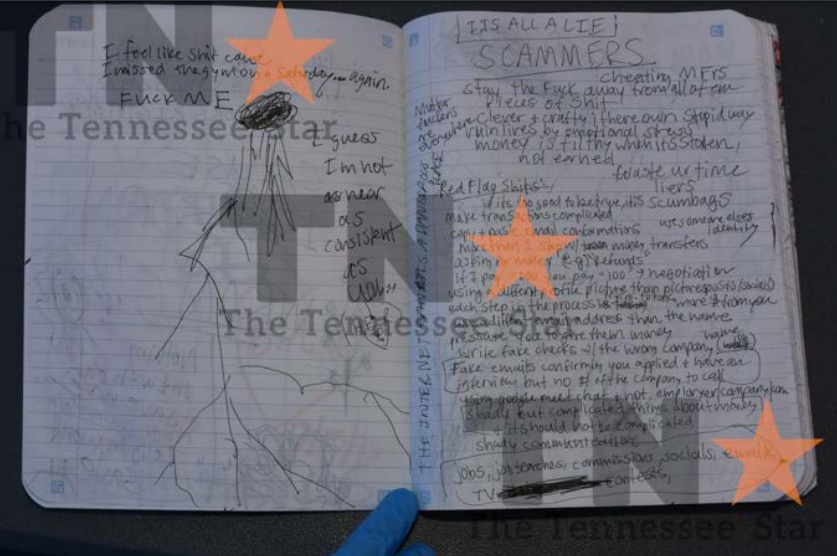 I feel like shit cause
I missed the gym on a Saturday... again.
FUCK ME
I guess
I'm not
as near
as
consistent
as
you..
ITS ALL A LIE
SCAMMERS
cheating MFrs
stay the Fuck away from all of em
pieces of shit
clever + crafty i there own stupid way
ruin lives by emotional stress
money is filthy when its stolen,
not earned
to waste ur time
liers
Mutter
fuckers
are
everywhere
THE INTERNET IS A DANGEROUS PLACE
Red Flag Shits:
if its to good to be true, its scumbags
make transactions complicated
use someone elses
identity
copy + paste email confirmations
more than 1 step w/ money transfers
asking for money (e.g.) Refunds
if I pay you pay +100 + negotiation
using different profile picture than pictures posts (socials)
each step in the process is more $ from you
use different email address than the name
pressure you to give them money
write fake checks w/ the wrong company name
Fake emails confirming you applied + have an
interview but no # of the company to call
using google meet chat + not employer/company.com
shady but complicated things about money
+ it should not be complicated
shady communication
jobs, job searches, commissions, socials, emails,
TV contests,
TN
The Tennessee Star
TN
The Tennessee Star
TN
The Tennessee Star